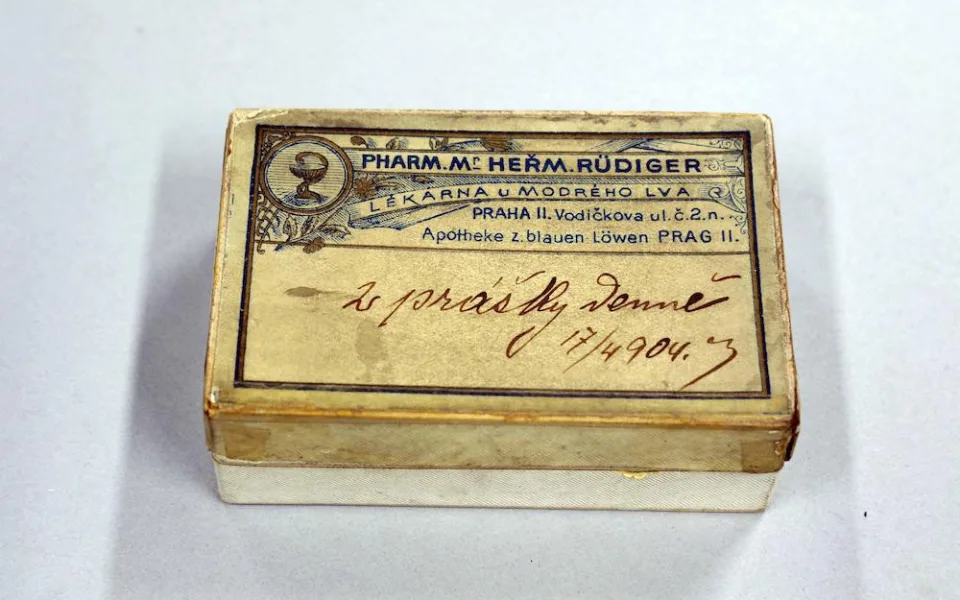 PHARM. Mr. HEŘM. RÜDIGER
LÉKÁRNA U MODRÉHO LVA
PRAHA II. Vodičkova ul. č. 2. n.
Apotheke z. blauen Löwen PRAG II.
2 prášky denně
17/4 904.